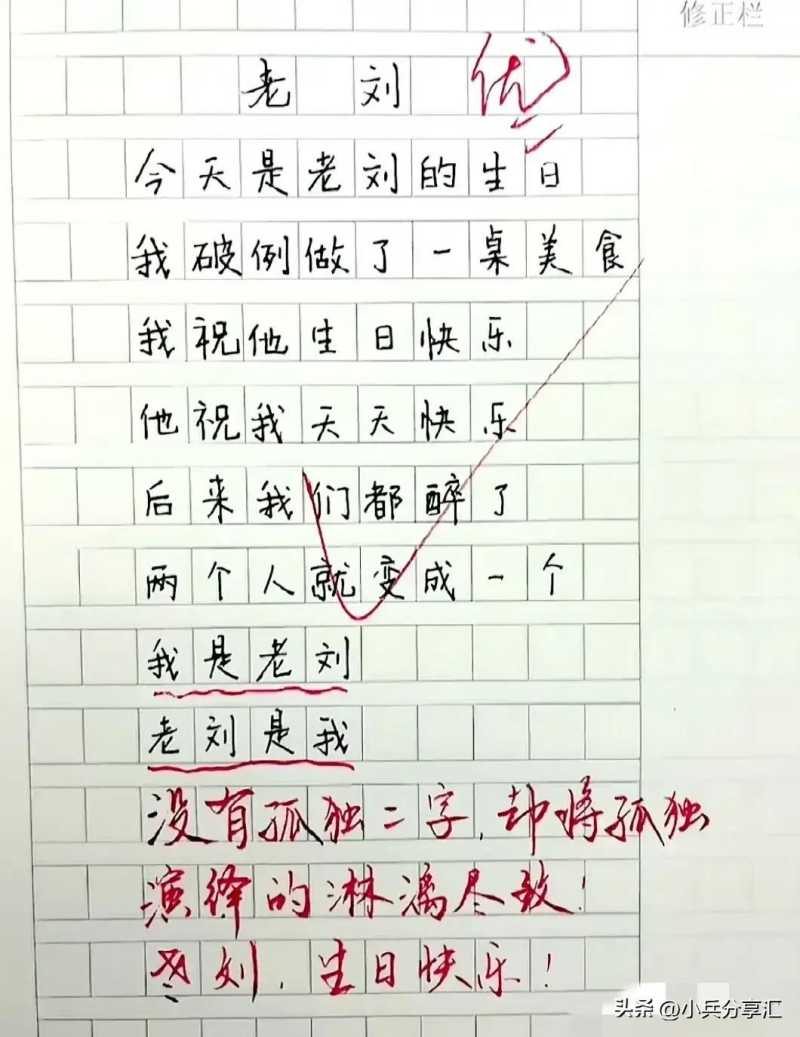 修正栏
老刘 优
今天是老刘的生日
我破例做了一桌美食
我祝他生日快乐
他祝我天天快乐
后来我们都醉了
两个人就变成一个
我是老刘
老刘是我
没有孤独二字,却将孤独
演绎的淋漓尽致!
老刘,生日快乐!
头条 @小兵分享汇